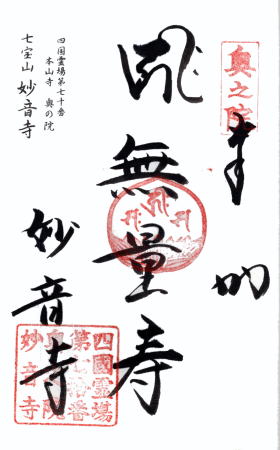 奥之院
奉拝
無量寿
妙音寺
四国霊場第七十番
本山寺 奥の院
七宝山 妙音寺
四國霊場
奥院
妙音寺